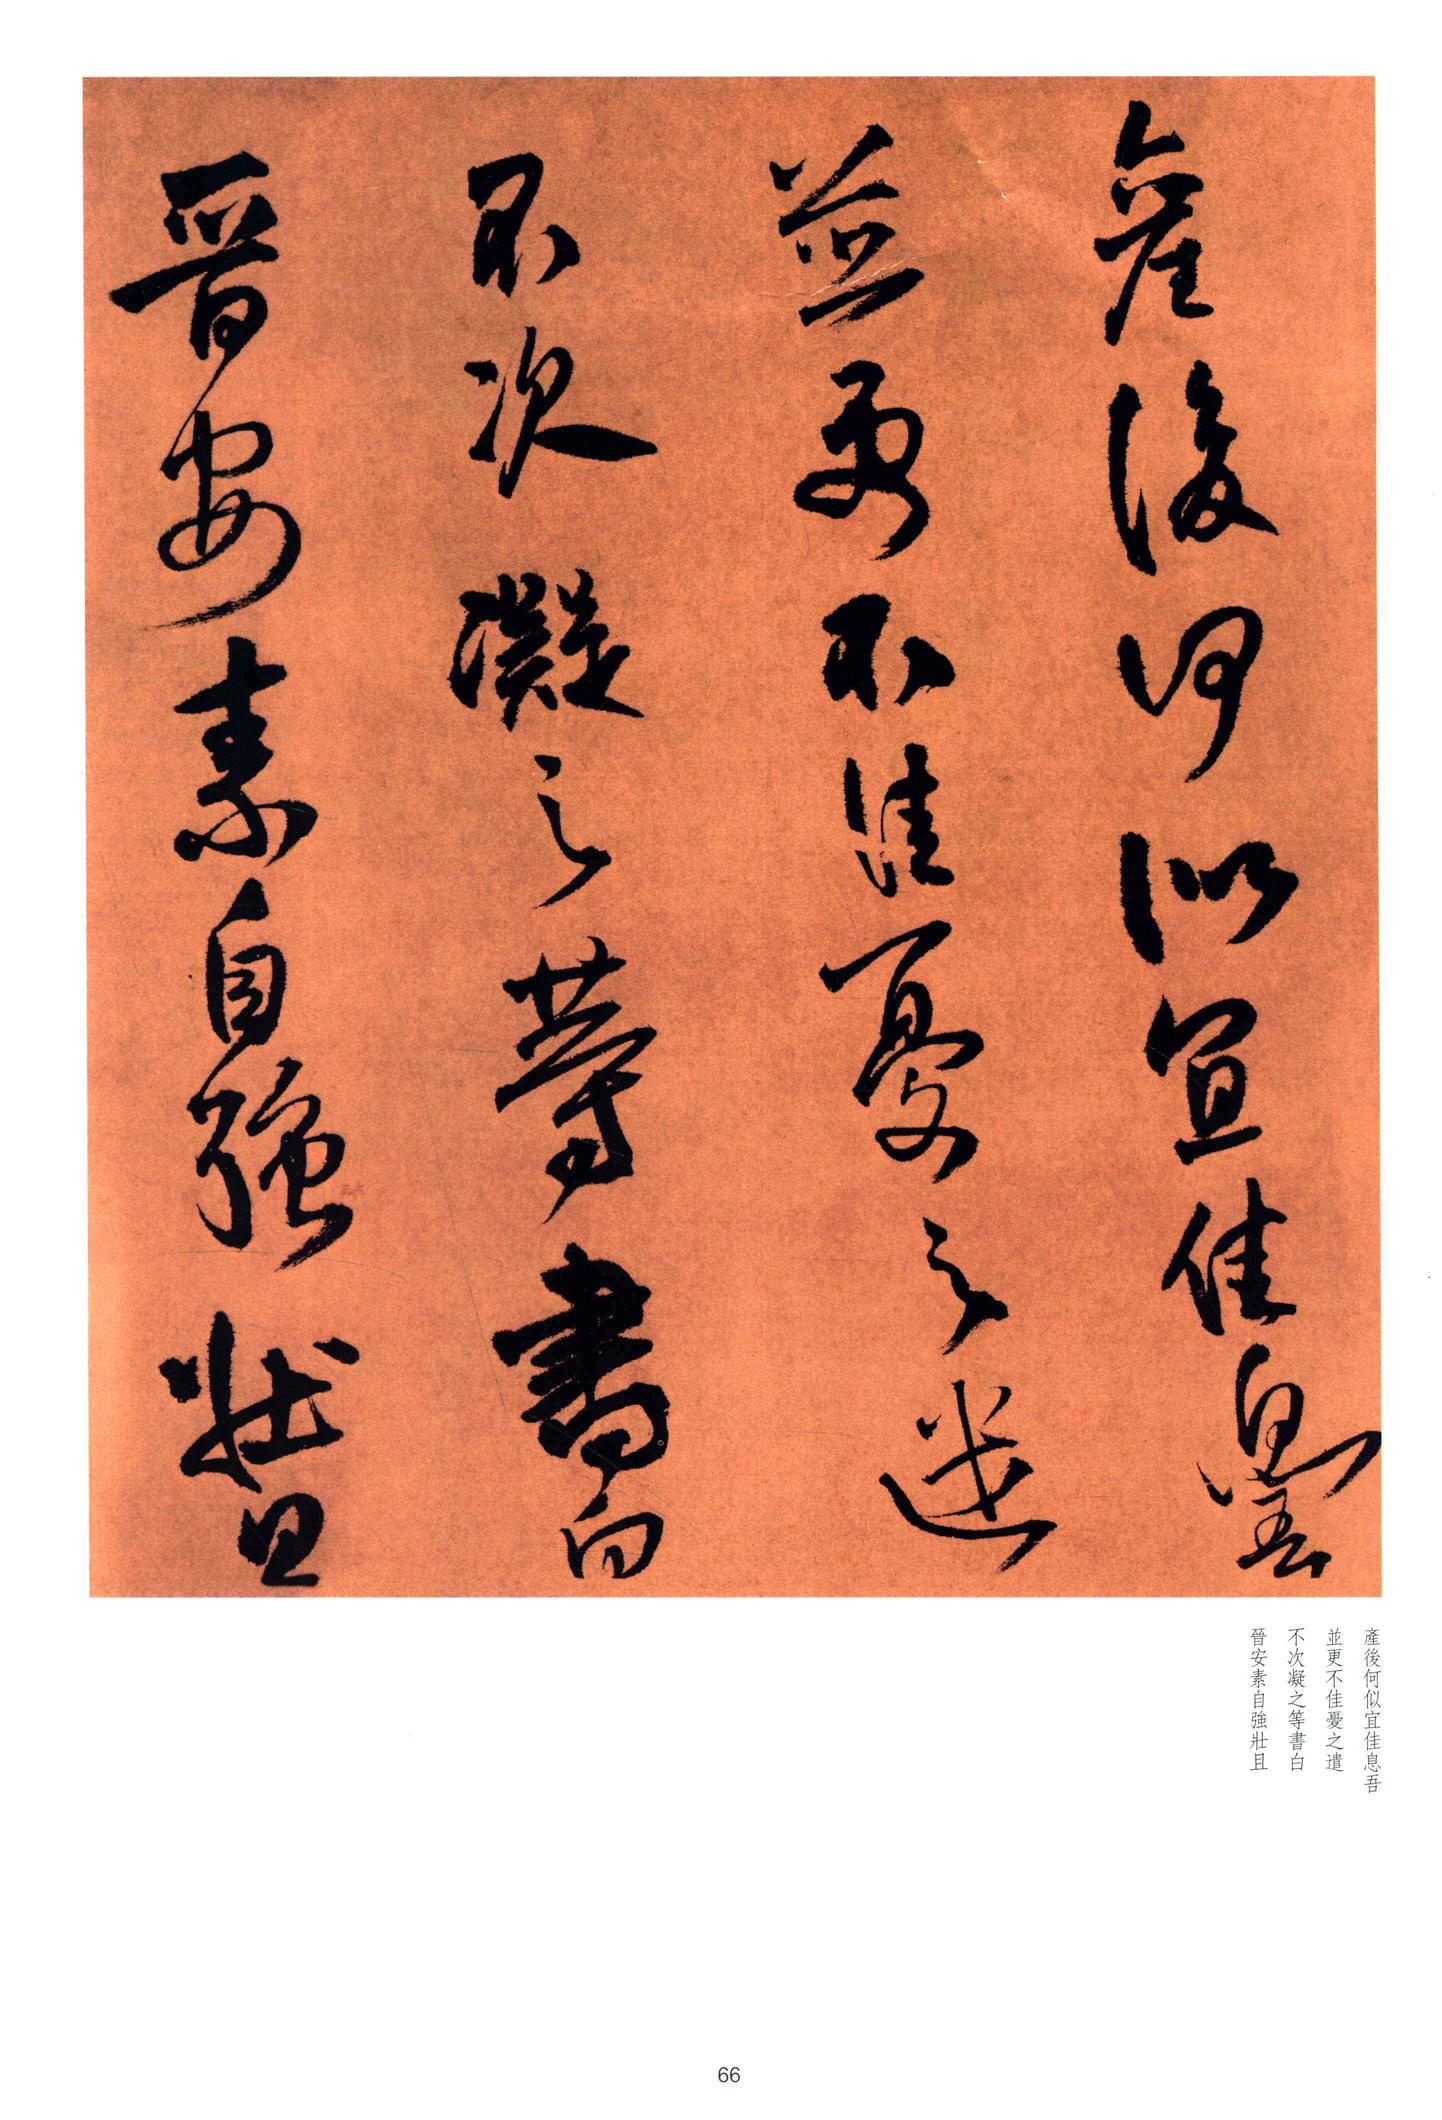 產後何似宜佳息吾
並更不佳憂之遣
不次凝之等書白
晉安素自強壯且
產後何似宜佳息吾
並更不佳憂之遣
不次凝之等書白
晉安素自強壯且
66